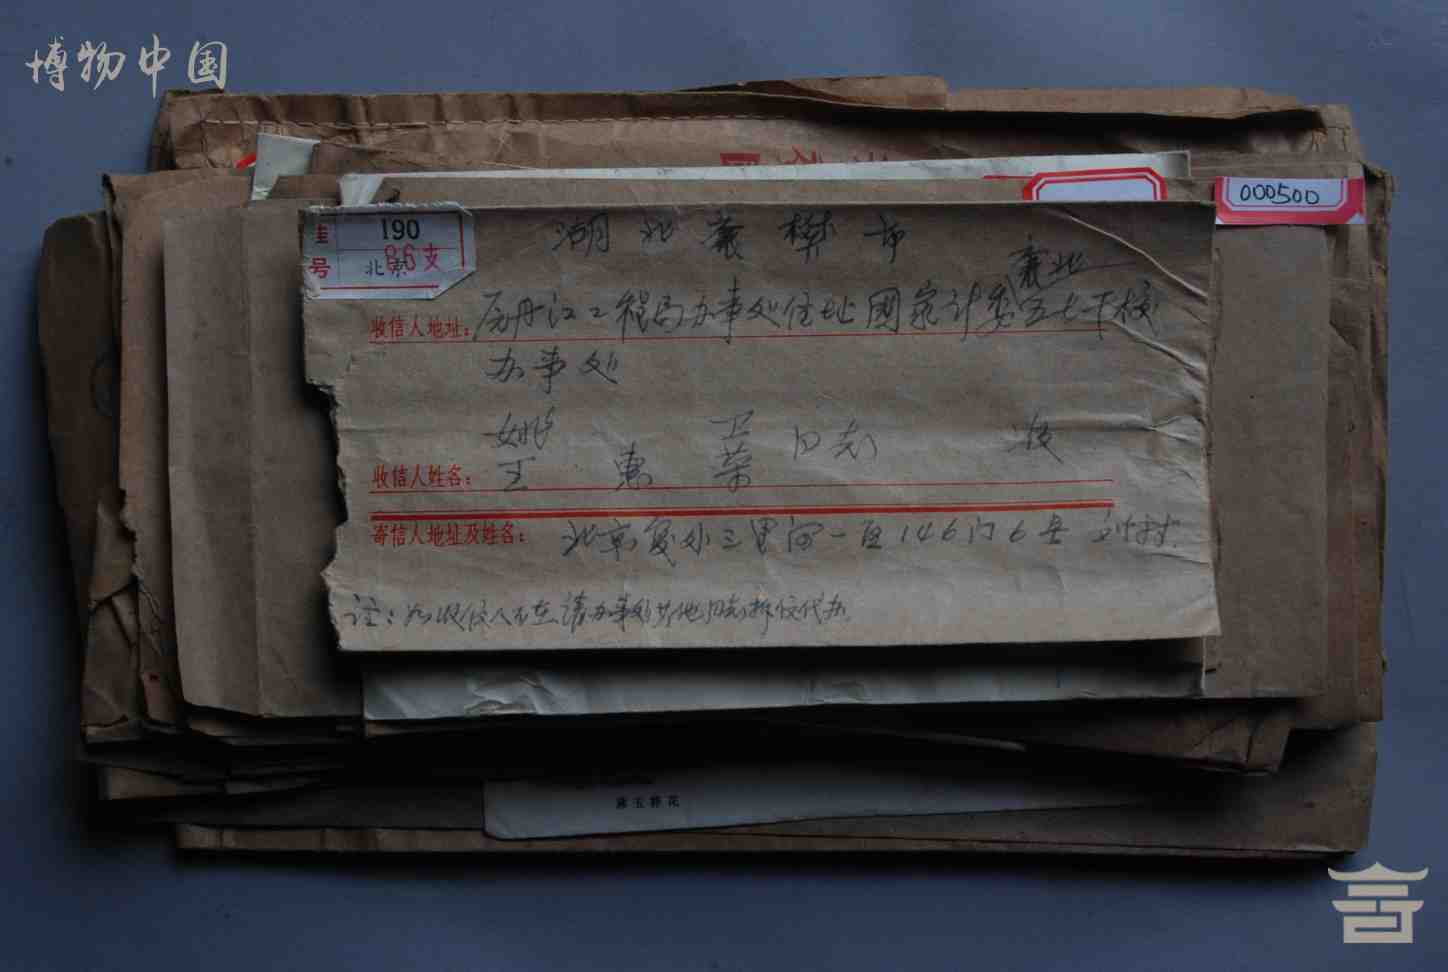 博物中国
000500
190
号
北京
86支
湖北襄樊市
襄北
收信人地址：原丹江工程局办事处住址国家计委五七干校
办事处
姚 卫 同志 收
收信人姓名：王 惠 荣
寄信人地址及姓名：北京复外三里河一区146门6号 刘
注：如收信人不在，请办事处其他同志拆信代办。